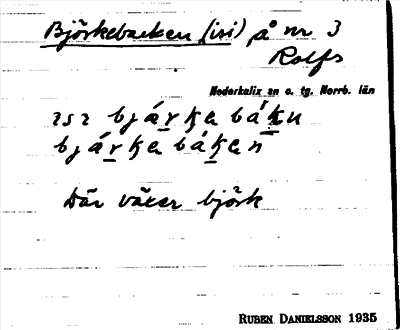 Björkebacken (isi) å nr 3
Rolfs
Nederkalix sn o. tg. Norrb. län
isi bjárka báku
bjárka bákan
Där växer björk
RUBEN DANIELSSON 1935